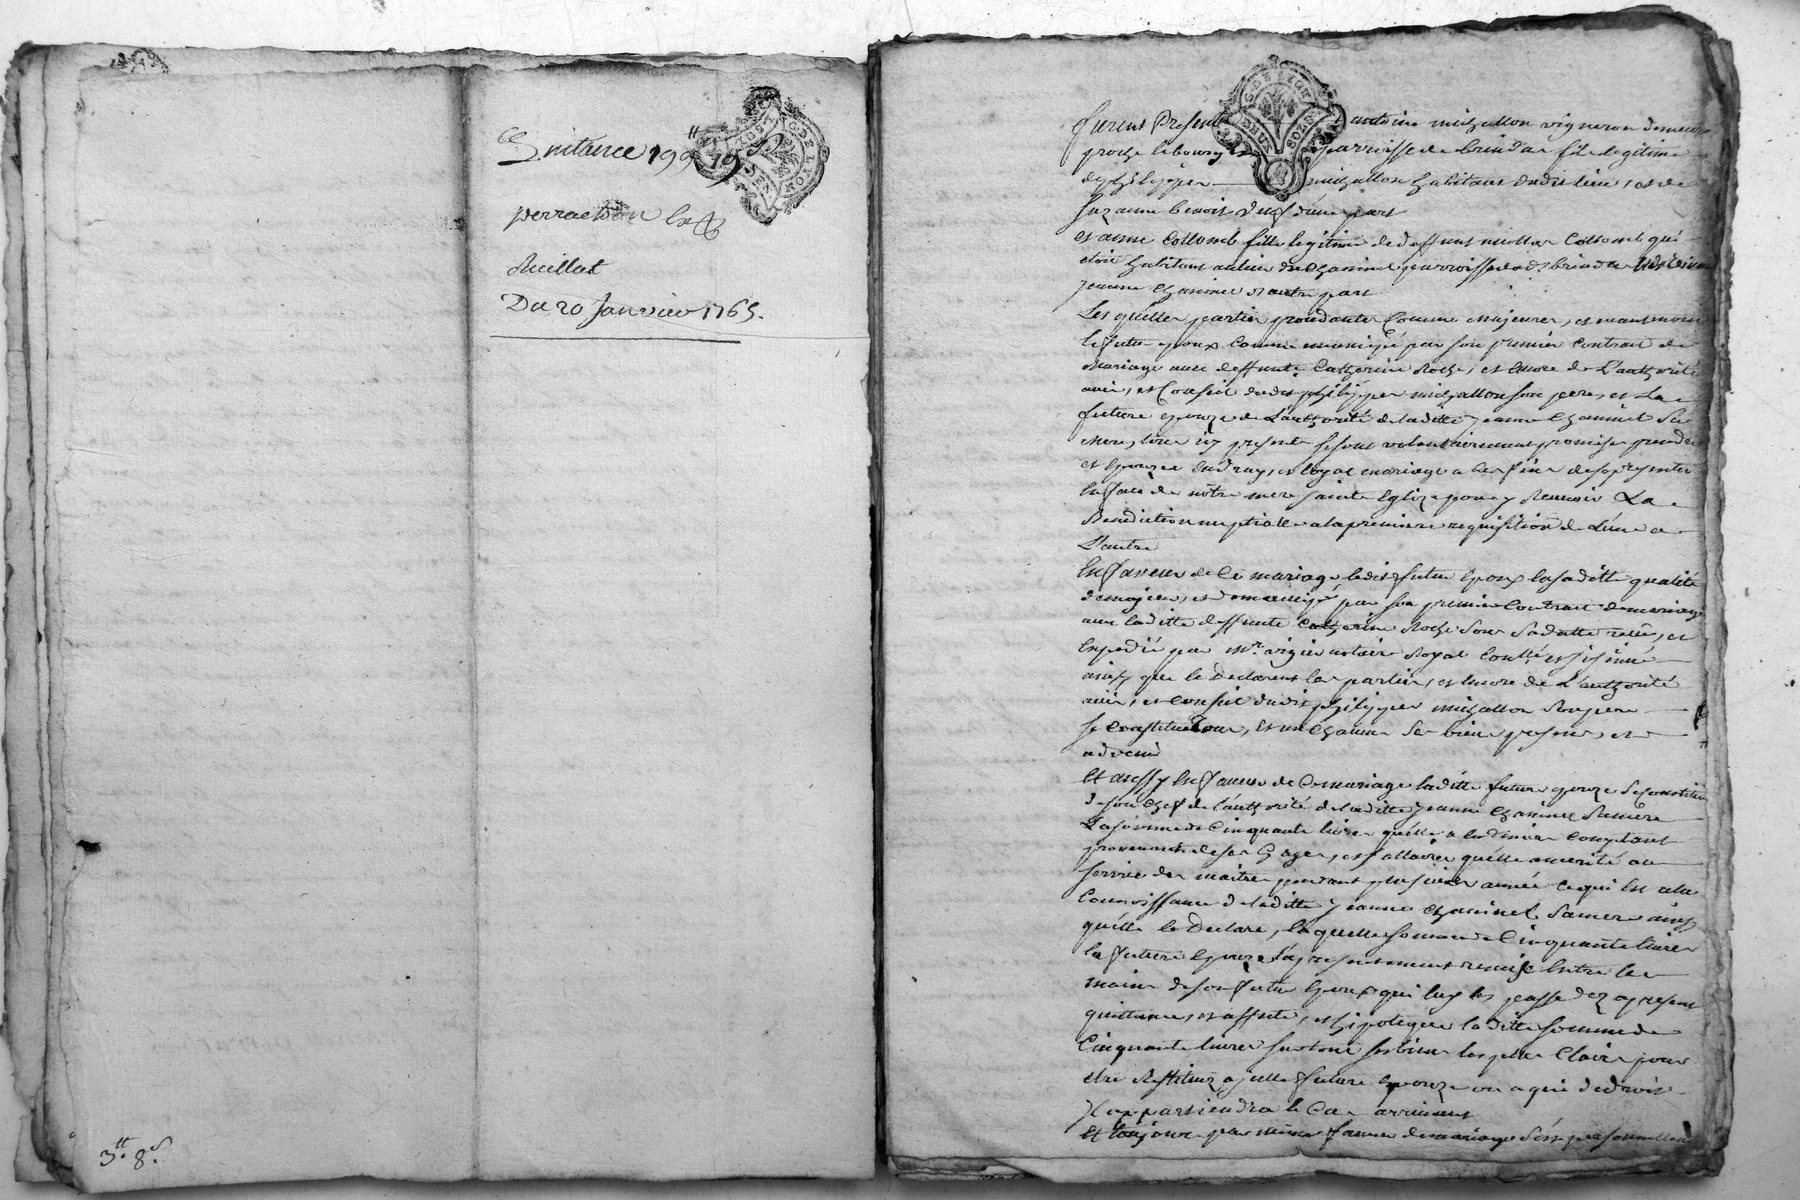 Quitance 199
perrachon
Ruillat
Du 20 Janvier 1765.
3" 8s
furent Presents antoine michallon vigneron demeurant
proche le bourg parroisse de brindas fils legitime
de philippes michallon habitant dudit lieu, et de
Suzanne benoit d'une part
et anne Collomb fille legitime de deffunt Collomb qui
etoit habitant au lieu du Chazaninel parroisse dudit brindas
jeanne d'autre part
Les quelles parties procedantes Comme majeures, et
le futur epoux Comme emancipé par son premier Contrat de
Mariage avec deffunte Catherine Roche, et encore de L'authorité
avis, et Conseil dudit philippes michallon son pere, et La
future epouze de L'authorité de laditte jeanne Sa
Mere, tous icy presents se sont volontairement promis se prendre
et epouzer en vray, et loyal mariage a ces fins de se presenter
en face de nôtre mere sainte Eglize pour y Recevoir La
Benediction nuptialle a la premiere requisition de L'une a
L'autre
En faveur de Ce mariage ledit futur Epoux en saditte qualité
de majeur, et emancipé par son premier Contrat de mariage
avec laditte deffunte Catherine Roche Sous Sa datte reçû, et
Expedié par Mre vigier notaire Royal Conllé et insinué
ainsy que le Declarent les parties, et encore de L'authorité
avis, et Conseil dudit philippes michallon Son pere
se Constitue tous, et un Chacuns Ses biens presents, et
advenir
Et aussy En faveur de Ce mariage laditte future epouze Se Constitue
de son Chef de l'authorité de laditte jeanne Sa Mere
La somme de Cinquante livres qu'elle a en deniers Comptant
provenants de ses Gages, et Sallaires qu'elle a merité au
Service des maitres pendant plusieurs années Ce qui Est a la
Connoissance de laditte jeanne Sa mere ainsy
qu'elle le Declare, la quelle somme de Cinquante livres
la future Epouze a presentement remise Entre les
mains de son futur Epoux qui luy en passe dez apresent
quittance, et affecte, et hipoteque laditte somme de
Cinquante livres sur tous ses biens les plus Clairs pour
etre Restituez a jcelle future Epouze ou a qui de droit
Jl appartiendra le Cas arrivant
Et toujours par même faveur de mariage S'est personnellement